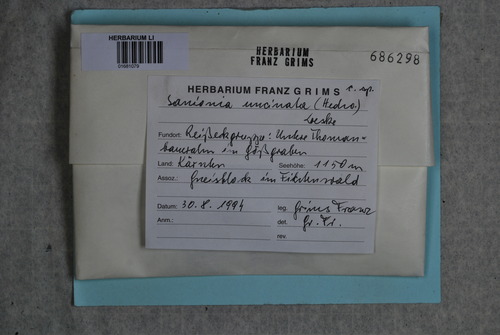 HERBARIUM LI
01681076
HERBARIUM
FRANZ GRIMS
686298
HERBARIUM FRANZ GRIMS c. sp.
Sanionia uncinata (Hedw.)
Loeske
Fundort: Reißeckgruppe: Untere Thoman-
baueralm im Gößgraben
Land: Kärnten Seehöhe: 1150 m
Assoz.: Gneisblock im Fichtenwald
Datum: 30.8.1994 leg. Grims Franz
Anm.: det. Gr. Fr.
rev.